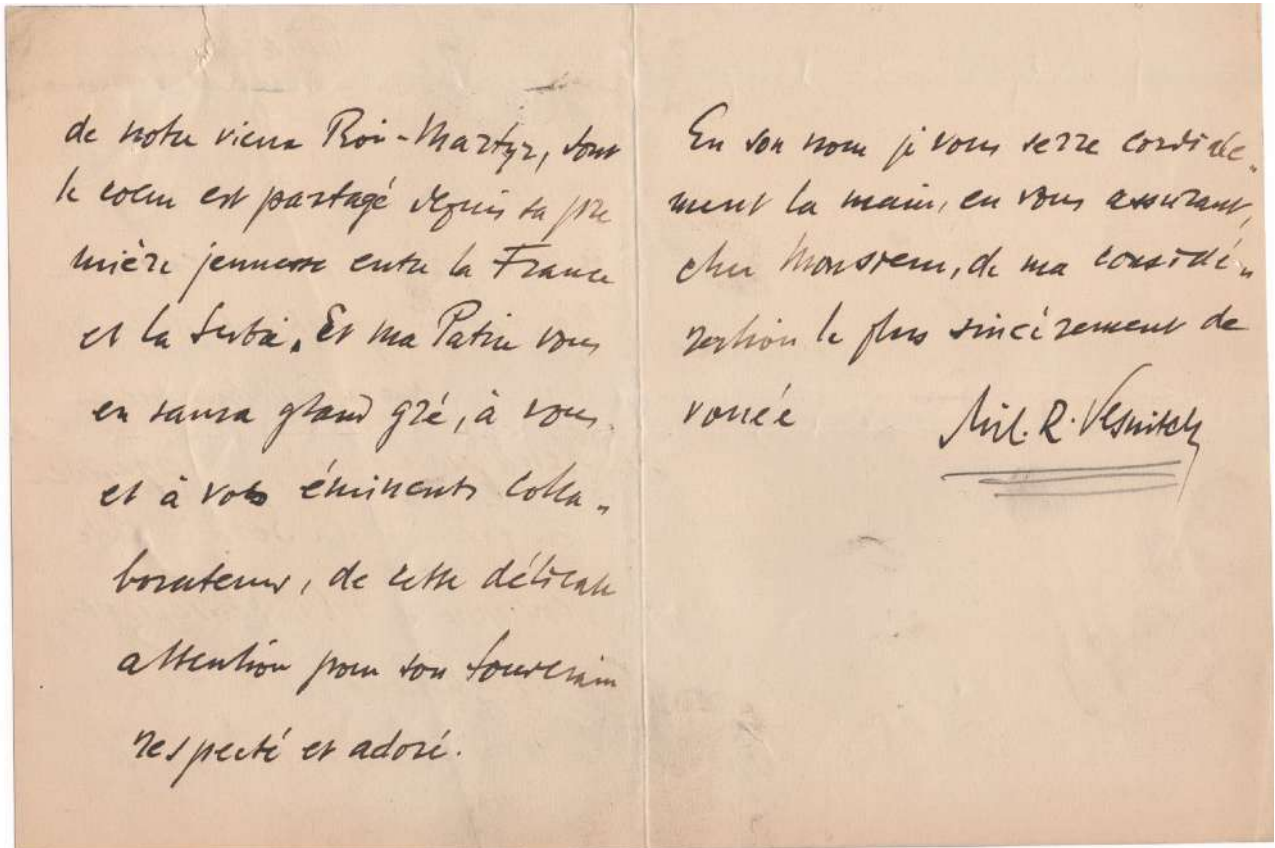 de notre vieux Roi-Martyr, dont
le coeur est partagé depuis sa pre
mière jeunesse entre la France
et la Serbie. Et ma Patrie vous
en saura grand gré, à vous
et à vos éminents colla„
borateurs, de cette délicate
attention pour son Souverain
respecté et adoré.
En son nom je vous serre cordiale„
ment la main, en vous assurant,
cher Monsieur, de ma considé„
ration le plus sincèrement de
vouée
Mil. R. Vesnitch